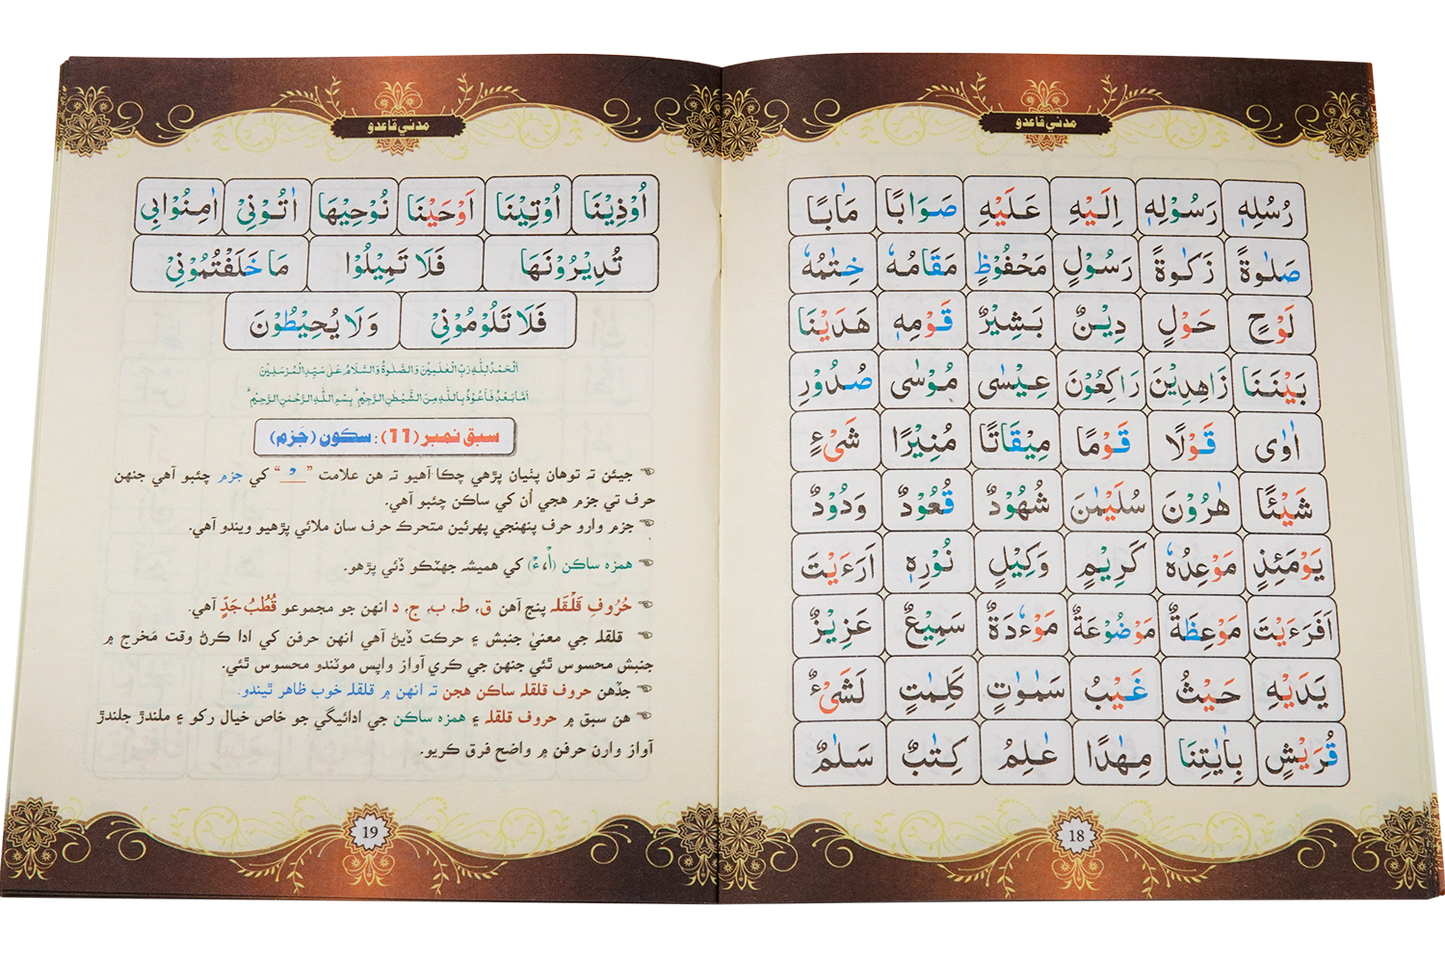 مدني قاعدو
رُسُلِهٖ رَسُوْلِهٖ اِلَيْهِ عَلَيْهِ صَوَابًا مَاٰبًا
صَلٰوةً زَكٰوةً رَسُوْلٍ مَحْفُوْظٍ مَقَامُهٗ خِتٰمُهٗ
لَوْحٍ حَوْلٍ دِيْنٌ بَشِيْرٌ قَوْمِهٖ هَدَيْنَا
بَيْنَنَا زَاهِدِيْنَ رَاكِعُوْنَ عِيْسٰى مُوْسٰى صُدُوْرِ
اٰوٰى قَوْلًا قَوْمًا مِيْقَاتًا مُنِيْرًا شَیْءٍ
شَيْـًٔا هٰرُوْنَ سُلَيْمٰنَ شُهُوْدٌ قُعُوْدٌ وَدُوْدٌ
يَوْمَئِذٍ مَوْعِدُهٗ كَرِيْمٍ وَكِيْلٍ نُوْرِهٖ اَرَءَيْتَ
اَفَرَءَيْتَ مَوْعِظَةٌ مَوْضُوْعَةٌ مَوْءٗدَةُ سَمِيْعٌ عَزِيْزٌ
يَدَيْهِ حَيْثُ غَيْبُ سَمٰوٰتٍ كَلِمٰتٍ لَشَیْءٌ
قُرَيْشٍ بِاٰيٰتِنَا مِهٰدًا عٰلِمُ كِتٰبٌ سَلٰمٌ
18
مدني قاعدو
اُوْذِيْنَا اُوْتِيْنَا اَوْحَيْنَا نُوْحِيْهَا اٰتُوْنِیْ اٰمِنُوْابِی
تُدِيْرُوْنَهَا فَلَا تَمِيْلُوْا مَا خَلَفْتُمُوْنِیْ
فَلَا تَلُوْمُوْنِیْ وَلَا يُحِيْطُوْنَ
اَلْحَمْدُ لِلّٰهِ رَبِّ الْعٰلَمِيْنَ وَالصَّلٰوةُ وَالسَّلَامُ عَلٰى سَيِّدِ الْمُرْسَلِيْنَ
اَمَّا بَعْدُ فَاَعُوْذُ بِاللّٰهِ مِنَ الشَّيْطٰنِ الرَّجِيْمِ بِسْمِ اللّٰهِ الرَّحْمٰنِ الرَّحِيْمِ
سبق نمبر (11): سڪون (جَزم)
جيئن ته توهان پٺيان پڙهي چڪا آهيو ته هن علامت “ ـْ ” کي جزم چئبو آهي جنهن
حرف تي جزم هجي اُن کي ساڪن چئبو آهي.
جزم وارو حرف پنهنجي پهرئين متحرڪ حرف سان ملائي پڙهيو ويندو آهي.
همزه ساڪن (أْ، ءْ) کي هميشہ جهٽڪو ڏئي پڙهو.
حُرُوفِ قَلْقَلہ پنج آهن ق، ط، ب، ج، د انهن جو مجموعو قُطُبُ جَدٍّ آهي.
قلقلہ جي معنيٰ جنبش ۽ حرڪت ڏيڻ آهي انهن حرفن کي ادا ڪرڻ وقت مَخرج ۾
جنبش محسوس ٿئي جنهن جي ڪري آواز واپس موٽندو محسوس ٿئي.
جڏهن حروف قلقلہ ساڪن هجن تہ انهن ۾ قلقلہ خوب ظاهر ٿيندو.
هن سبق ۾ حروف قلقلہ ۽ همزه ساڪن جي ادائيگي جو خاص خيال رکو ۽ ملندڙ جلندڙ
آواز وارن حرفن ۾ واضح فرق ڪريو.
19